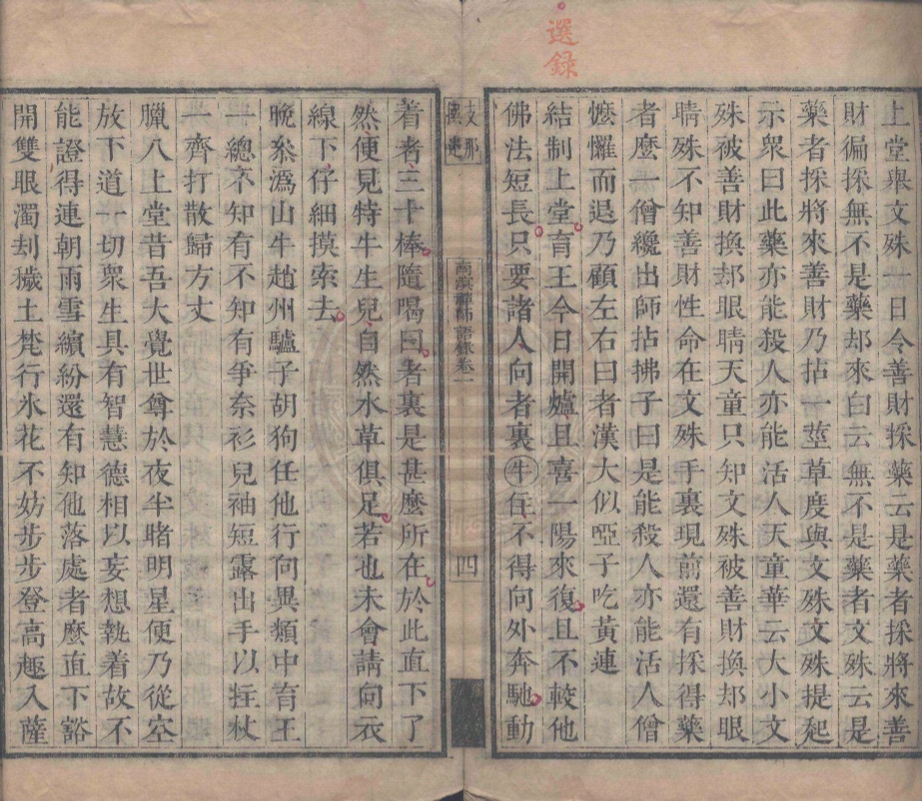 選錄
上堂舉文殊一日令善財採藥云是藥者採將來善
財徧採無不是藥却來白云無不是藥者文殊云是
藥者採將來善財乃拈一莖草度與文殊文殊提起
示眾曰此藥亦能殺人亦能活人天童華云大小文
殊被善財換却眼睛天童只知文殊被善財換却眼
睛殊不知善財性命在文殊手裏現前還有採得藥
者麼一僧纔出師拈拂子曰是能殺人亦能活人僧
憷㦬而退乃顧左右曰者漢大似啞子吃黃連
結制上堂育王今日開爐且喜一陽來復且不較他
佛法短長只要諸人向者裏㊕住不得向外奔馳動
支那
撰述
語錄卷一
四
着者三十棒隨喝曰者裏是甚麼所在於此直下了
然便見特牛生兒自然水草俱足若也未會請向衣
線下仔細摸索去
晚叅溈山牛趙州驢子胡狗任他行向異類中育王
一總不知有不知有爭奈衫兒袖短露出手以拄杖
一齊打散歸方丈
臘八上堂昔吾大覺世尊於夜半睹明星便乃從空
放下道一切眾生具有智慧德相以妄想執着故不
能證得連朝雨雪繽紛還有知他落處者麼直下豁
開雙眼濁刦穢土梵行氷花不妨步步登高趣入薩